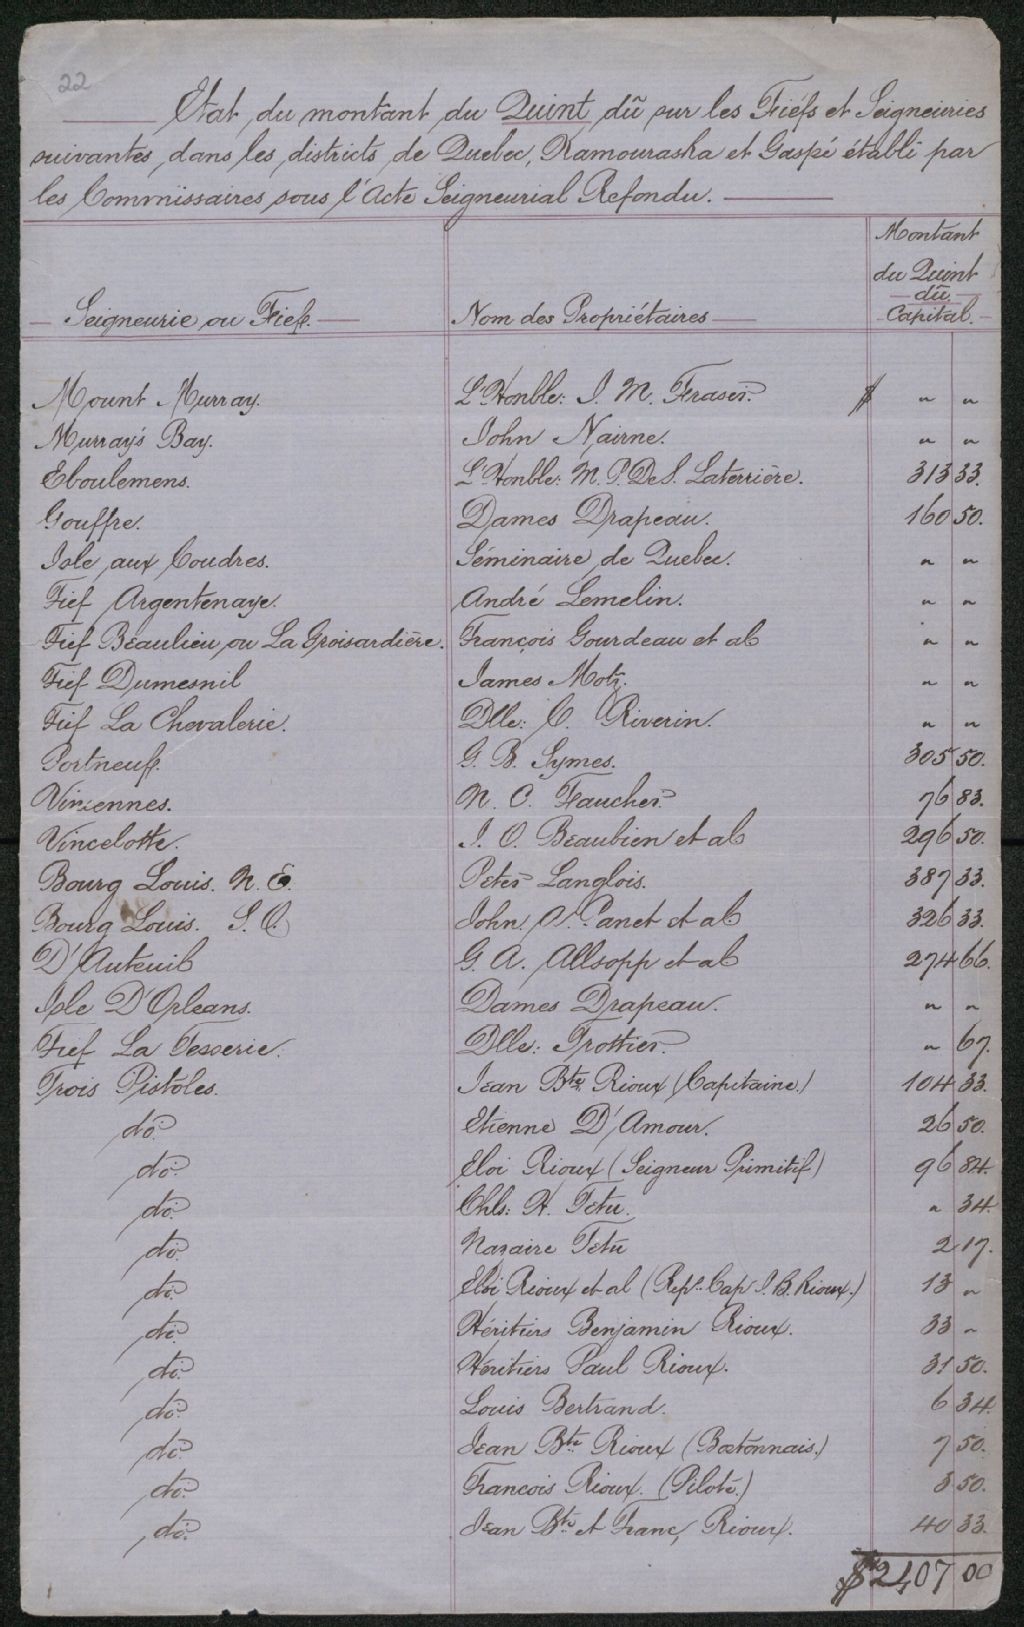 22
Etat du montant du Quint dû sur les Fiéfs et Seigneuries
suivantes, dans les districts de Quebec, Kamouraska et Gaspé établi par
les Commissaires sous l'Acte Seigneurial Refondu.
Montant
du Quint
dû
Seigneurie ou Fief. Nom des Propriétaires Capital.
Mount Murray. L'Honble: J. M. Fraser. $ " "
Murray's Bay. John Nairne. " "
Eboulemens. L'Honble: M. P. De S. Laterrière. 313 33.
Gouffre. Dames Drapeau. 160 50.
Isle aux Coudres. Séminaire de Quebec. " "
Fief Argentenaye. André Lemelin. " "
Fief Beaulieu ou La Groisardière. François Gourdeau et al " "
Fief Dumesnil James Motz. " "
Fief La Chevalerie. Dlle: C. Riverin. " "
Portneuf. G. B. Symes. 305 50.
Vincennes. N. C. Faucher. 76 83.
Vincelotte. J. O. Beaubien et al 296 50.
Bourg Louis. N. E. Peter Langlois. 387 33.
Bourg Louis. S. O. John Panet et al. 326 33.
D'Auteuil G. A. Allsopp et al 274 66.
Isle D'Orleans. Dames Drapeau. " "
Fief La Tesserie. Dlle: Trottier. " 67.
Trois Pistoles. Jean Bte Rioux (Capitaine.) 104 33.
do. Etienne D'Amour. 26 50.
do. Eloi Rioux (Seigneur Primitif) 96 84.
do. Chls: H. Tetu. " 34.
do. Nazaire Tetu 2 17.
do. Eloi Rioux et al (Rep. Cap J. B. Rioux.) 13 "
do. Héritiers Benjamin Rioux. 33 "
do. Héritiers Paul Rioux. 31 50.
do. Louis Bertrand. 6 34.
do. Jean Bte Rioux (Bastonnais.) 7 50.
do. Francois Rioux. (Pilote.) 3 50.
do. Jean Bte et Franc, Rioux. 40 33.
$2,407 00